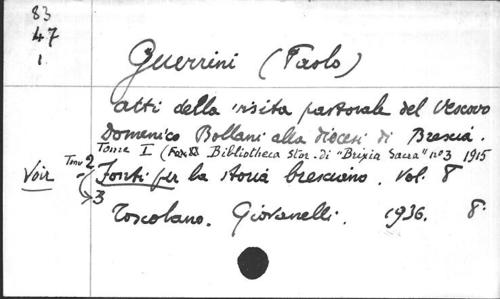 83
47
1
Guerrini (Paolo)
atti della visita pastorale del Vescovo
Domenico Bollani alla diocesi di Brescia.
Tome I ( Bibliotheca stor. di "Brixia Sacra" nº3 1915
Voir Tome 2 Fonti per la storia bresciano. Vol. 8
3
Toscolano. Giovanelli. 1936. 8º